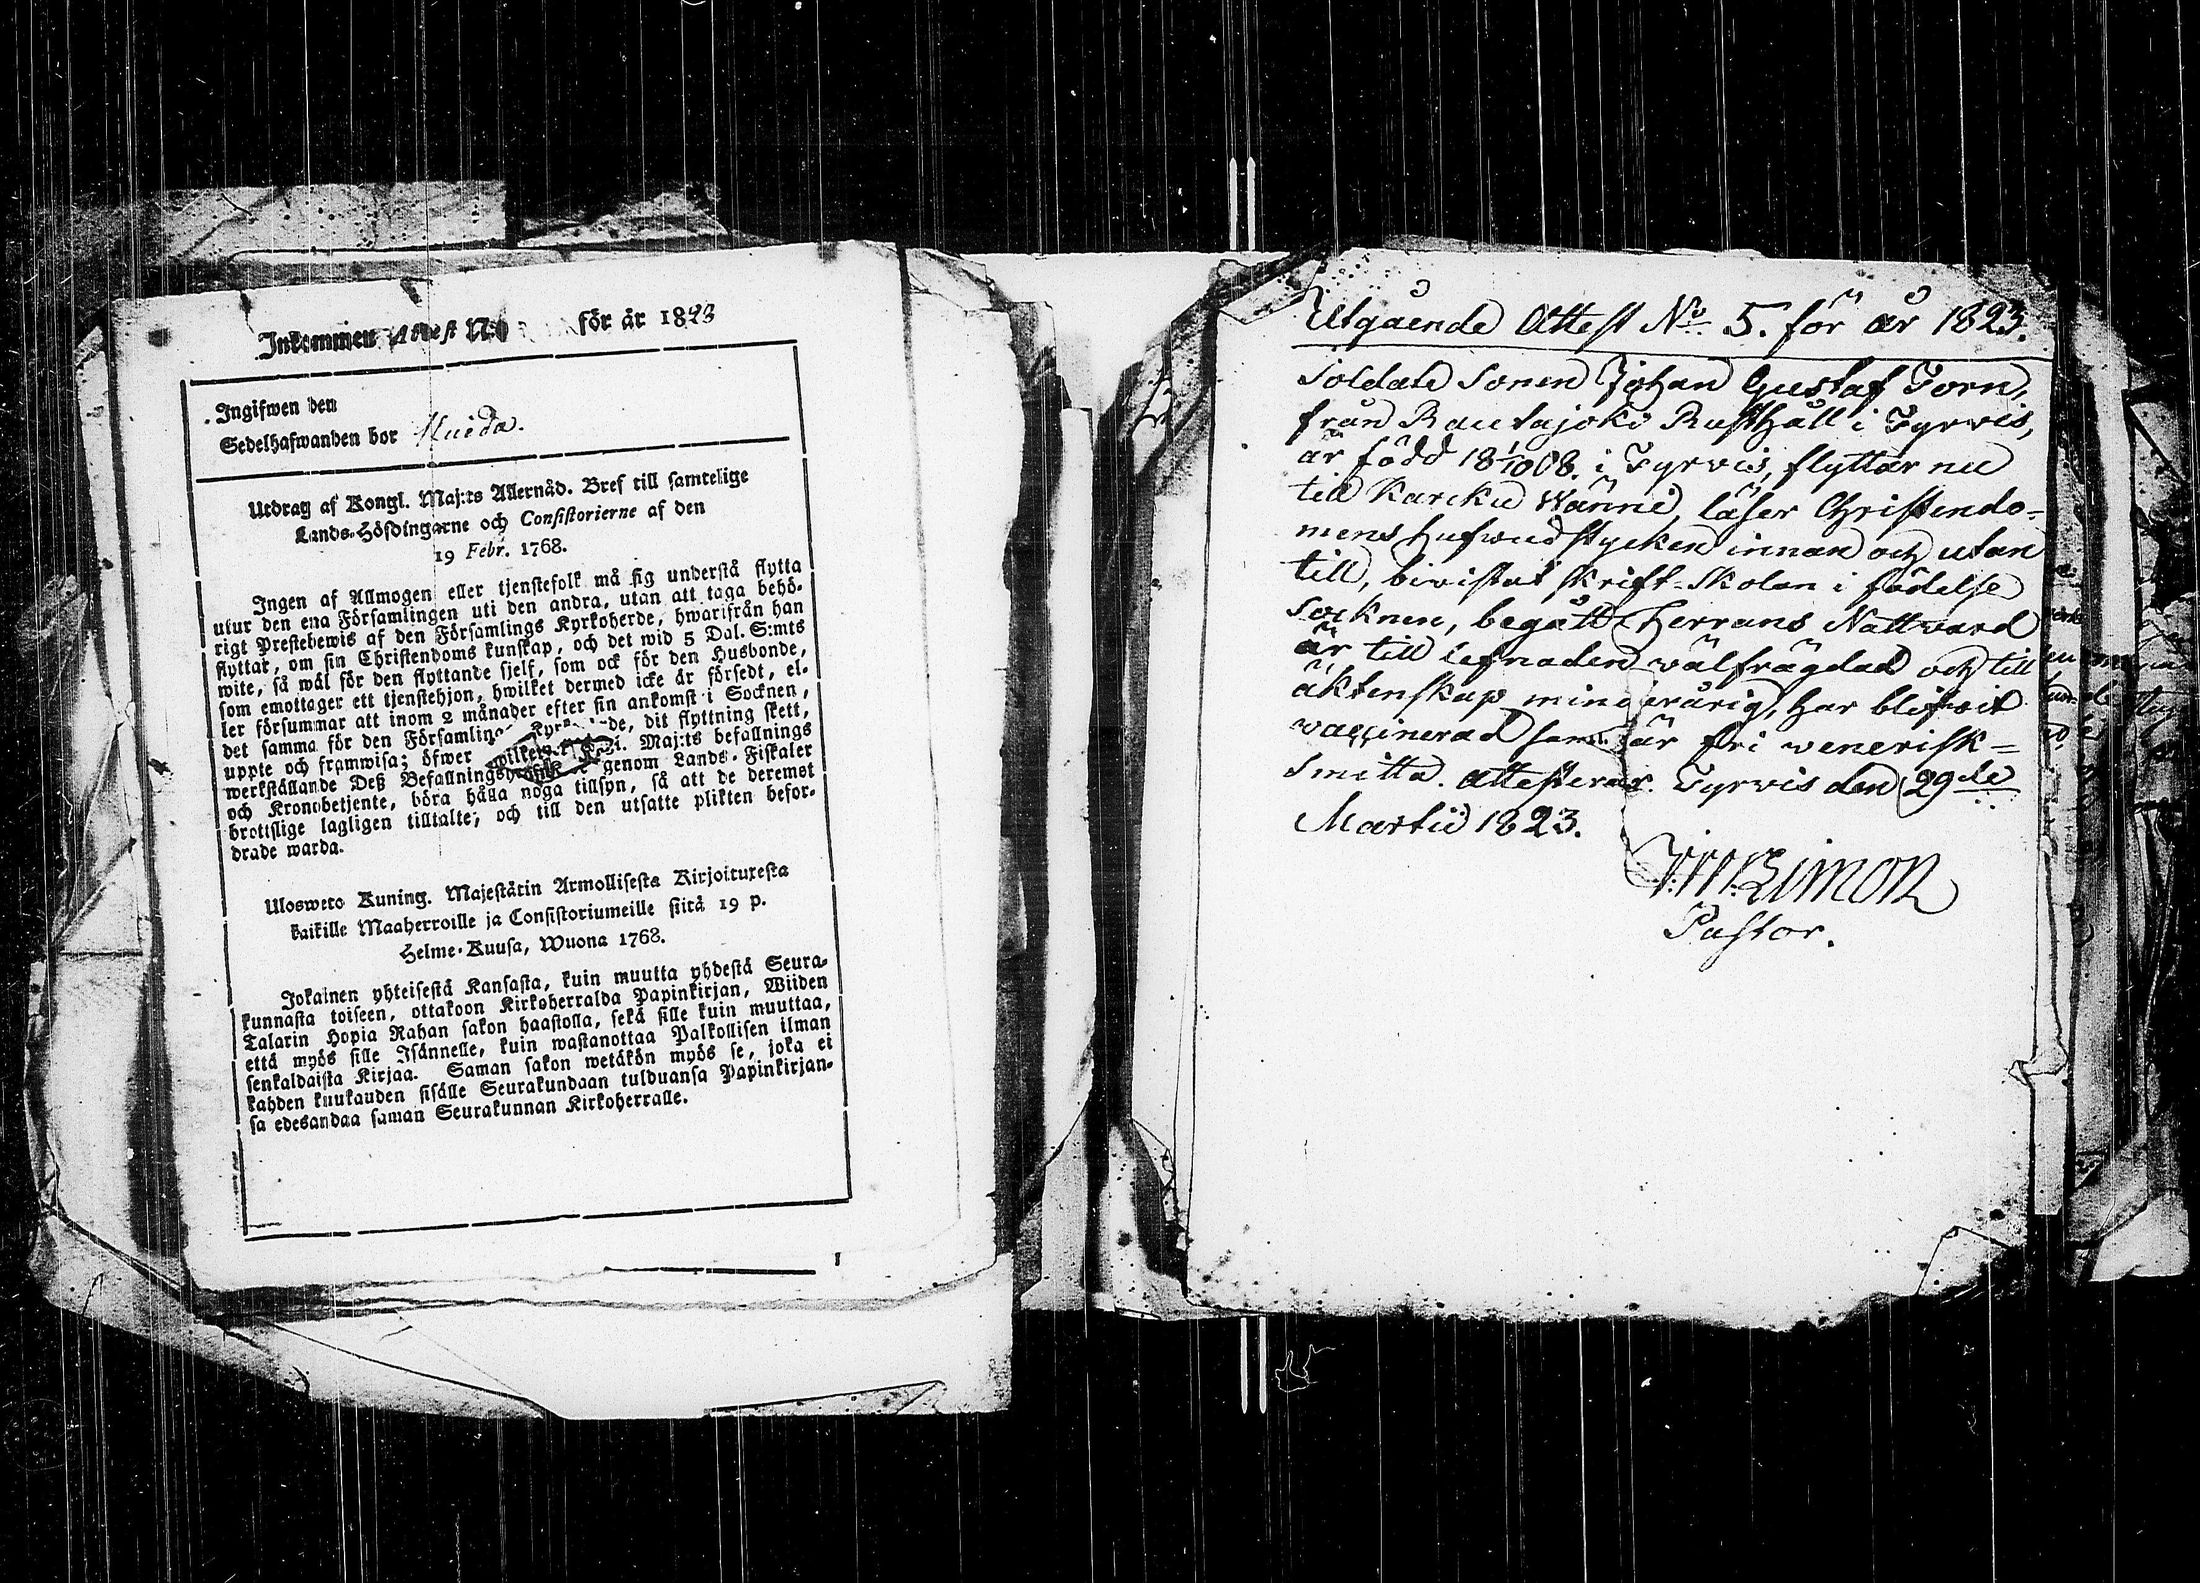 Inkommen Attest N:o för år 1823
Ingifwen den
Sedelhafwanden bor
Utdrag af Kongl. Maj:ts Allernåd. Bref till samtelige
Lands-Höfdingarne och Consistorierne af den
19 Febr. 1768.
Ingen af Allmogen eller tjenstefolk må sig understå flytta
utur den ena Församlingen uti den andra, utan att taga behö-
rigt Prestebewis af den Församlings Kyrkoherde, hwarifrån han
flyttar, om sin Christendoms kunskap, och det wid 5 Dal. S:mts
wite, så wäl för den flyttande sjelf, som ock för den Husbonde,
som emottager ett tjenstehjon, hwilket dermed icke är försedt, el-
ler försummar att inom 2 månader efter sin ankomst i Socknen,
det samma för den Församlings Kyrkoherde, dit flyttning skett,
uppte och framwisa; öfwer hwilket Maj:ts befallnings
werkställande Deß Befallningshafwande genom Lands-Fiskaler
och Kronobetjente, böra hålla noga tillsyn, så att de deremot
brottslige lagligen tilltalte, och till den utsatte plikten befor-
drade warda.
Ulosweto Kuning. Majestätin Armollisesta Kirjoituxesta
kaikille Maaherroille ja Consistoriumeille siitä 19 p.
Helme-Kuusa, Wuona 1768.
Jokainen yhteisestä Kansasta, kuin muutta yhdestä Seura-
kunnasta toiseen, ottakoon Kirkoherralda Papinkirjan, Wiiden
Talarin Hopia Rahan sakon haastolla, sekä sille kuin muuttaa,
että myös sille Isännelle, kuin wastanottaa Palkollisen ilman
senkaldaista Kirjaa. Saman sakon wetäkön myös se, joka ei
kahden kuukauden sisälle Seurakundaan tulduansa Papinkirjan-
sa edesandaa saman Seurakunnan Kirkoherralle.
Utgående Attest No 5. för år 1823.
Soldate Sonen Johan Gustaf Torn,
från Rautajoki Rusthåll i Tyrvis,
är född 18 1/10 08. i Tyrvis, flyttar nu
till Karcku Wänni, läser Christendo-
mens hufwudstycken innan och utan
till, bivistat Skrift-Skolan i födelse
Socknen, begått Herrans Nattvard
är till lefnaden wälfrägdad och till
äktenskap minderårig, har blifwit
vaccinerad samt är fri venerisk-
Smitta. Attesterar. Tyrvis den 29de
Martii 1823.
Pastor.